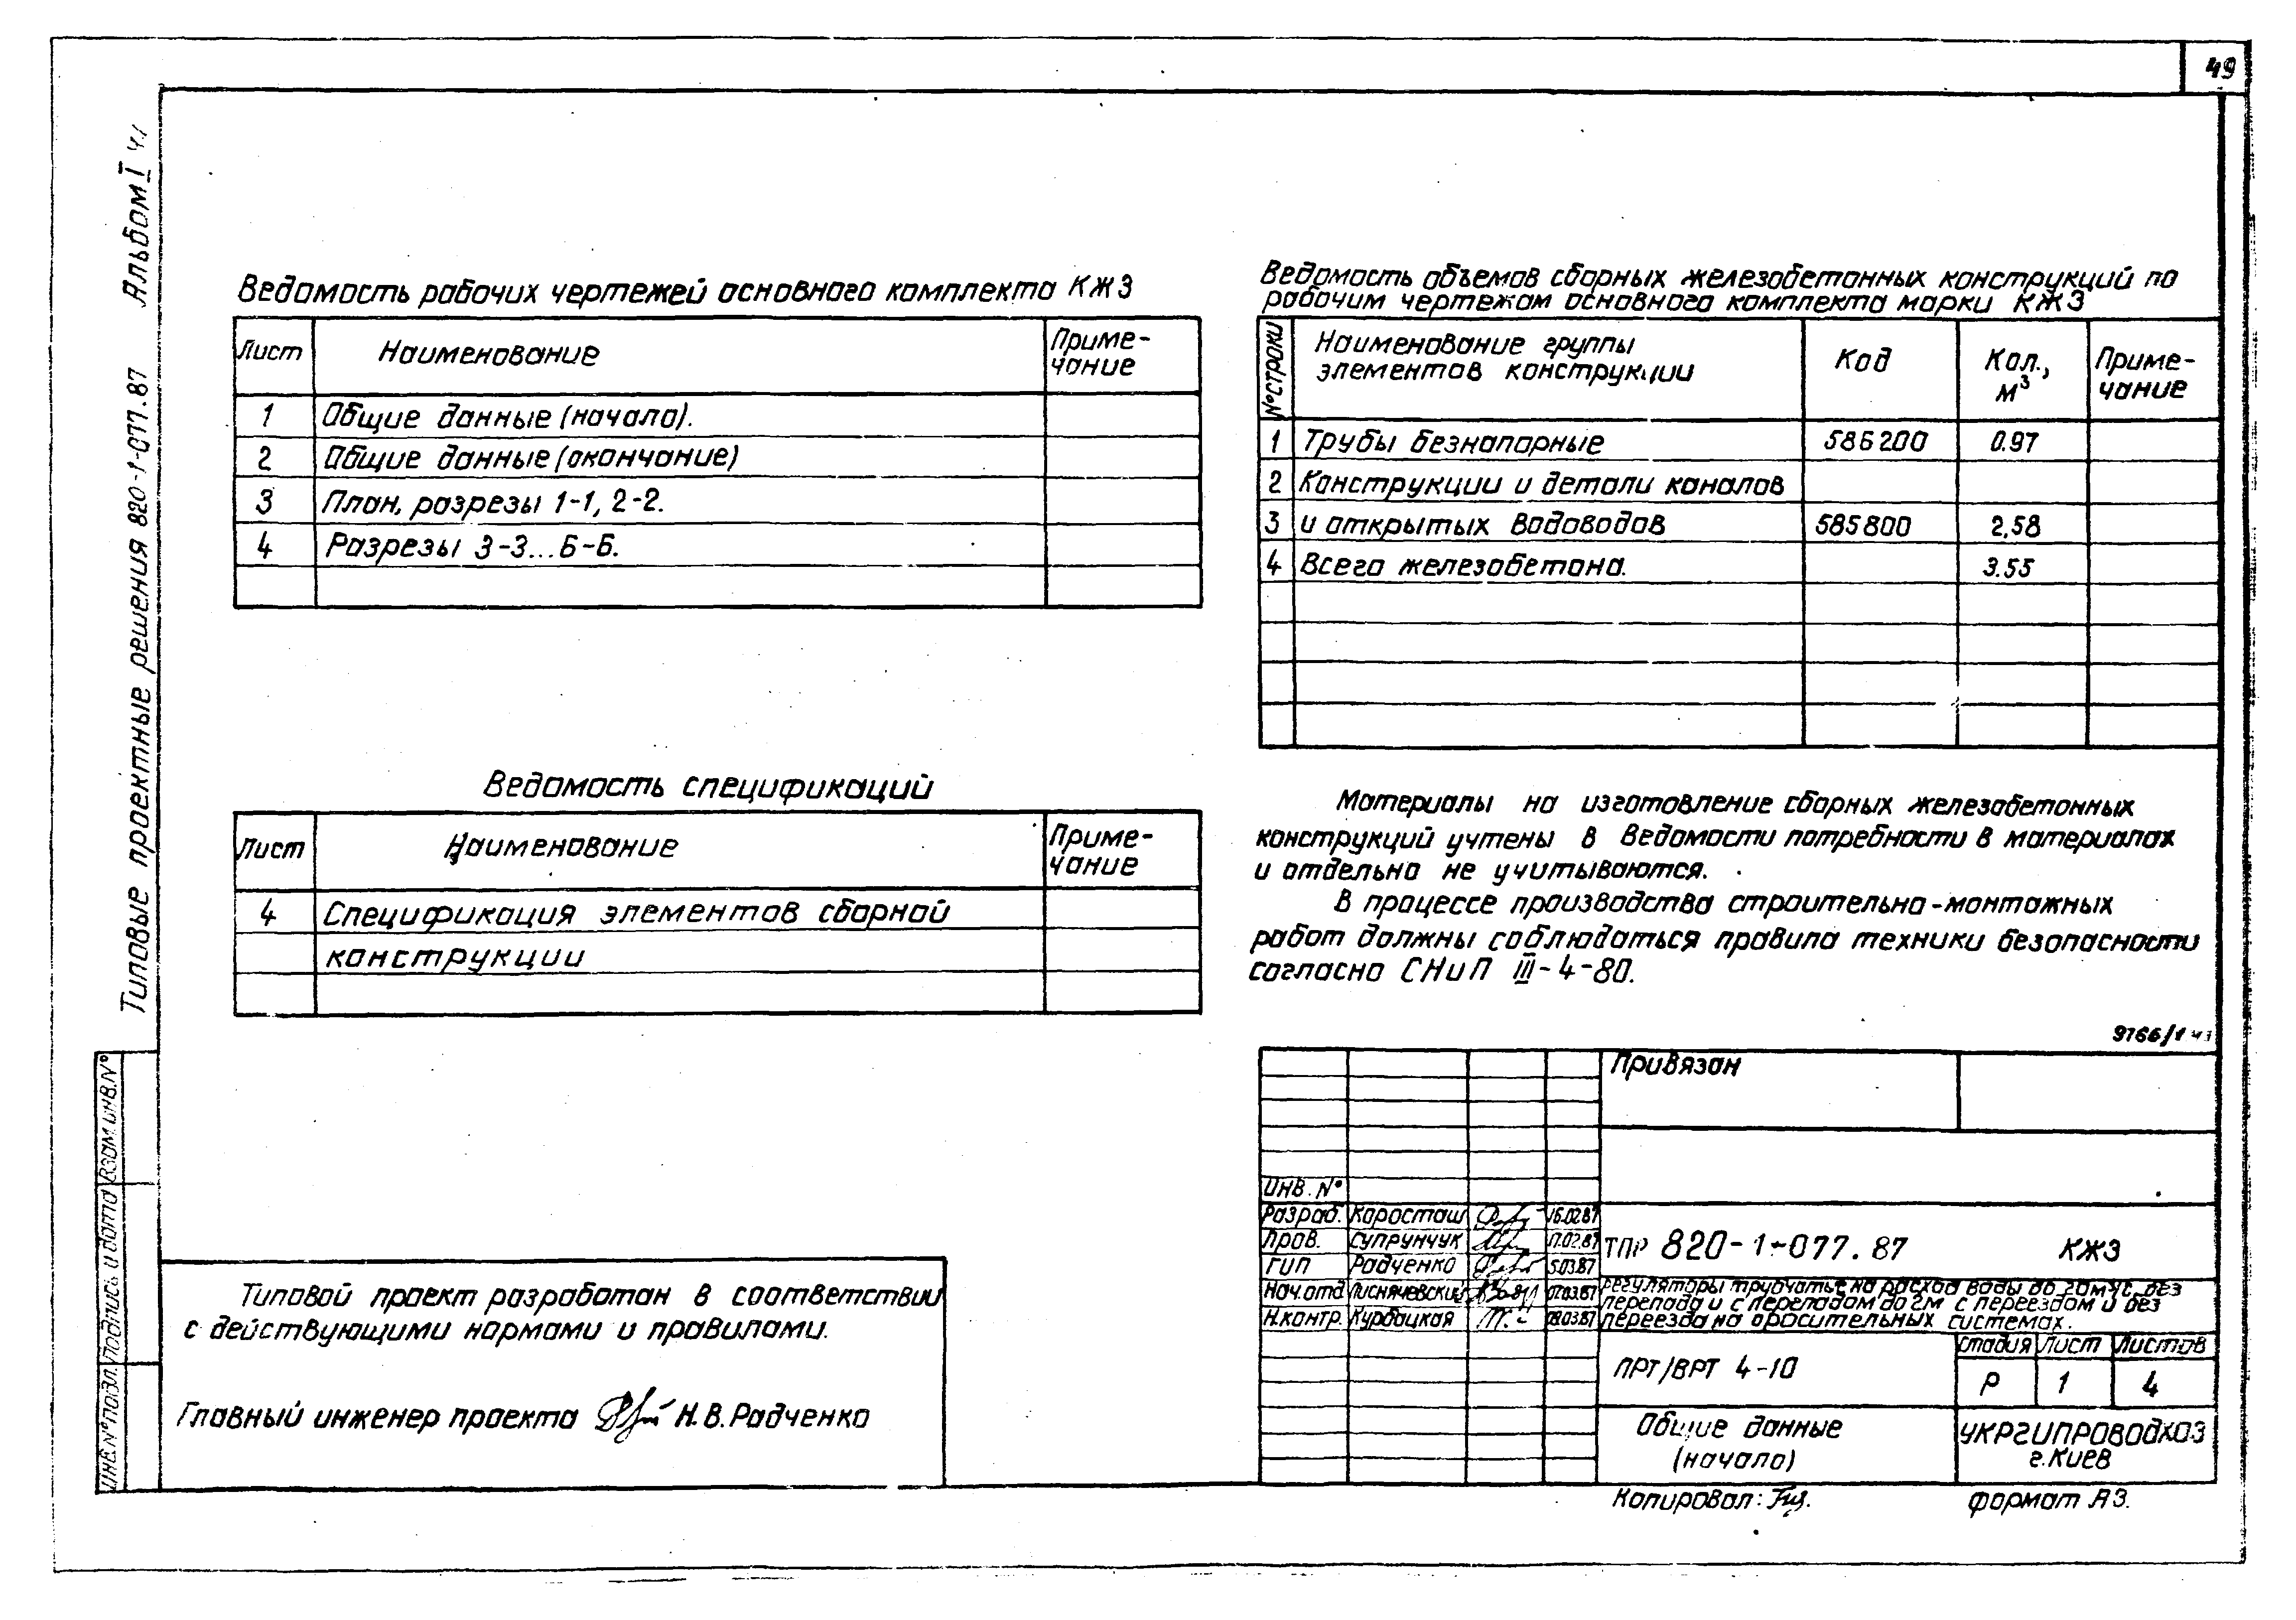 49
Альбом I ч.1
Типовые проектные решения 820-1-077.87
Ведомость рабочих чертежей основного комплекта КЖ3
Лист Наименование Приме-
чание
1 Общие данные (начало).
2 Общие данные (окончание)
3 План, разрезы 1-1, 2-2.
4 Разрезы 3-3...6-6.
Ведомость спецификаций
Лист Наименование Приме-
чание
4 Спецификация элементов сборной
конструкции
Ведомость объемов сборных железобетонных конструкций по
рабочим чертежам основного комплекта марки КЖ3
№ строки Наименование группы
элементов конструкции Код Кол.,
м³ Приме-
чание
1 Трубы безнапорные 586200 0.97
2 Конструкции и детали каналов
3 и открытых водоводов 585800 2,58
4 Всего железобетона. 3.55
Материалы на изготовление сборных железобетонных
конструкций учтены в ведомости потребности в материалах
и отдельно не учитываются.
В процессе производства строительно-монтажных
работ должны соблюдаться правила техники безопасности
согласно СНиП III-4-80.
9766/1
Привязан
Инв. №
Разраб. Коросташ 16.02.87
Пров. Супрунчук 17.02.87
ГИП Радченко 5.03.87
Нач.отд Лиснячевский 07.03.87
Н.контр. Курбацкая 09.03.87
ТПР 820-1-077.87 КЖ3
Регуляторы трубчатые на расход воды до без
перепада и с перепадом до 2м с переездом и без
переезда на оросительных системах.
ПРТ/ВРТ 4-10
Стадия Лист Листов
Р 1 4
Общие данные
(начало)
УКРГИПРОВОДХОЗ
г.Киев
Копировал:
формат А3.
Взам.инв.№
Подпись и дата
Инв.№подл.
Типовой проект разработан в соответствии
с действующими нормами и правилами.
Главный инженер проекта Н.В.Радченко